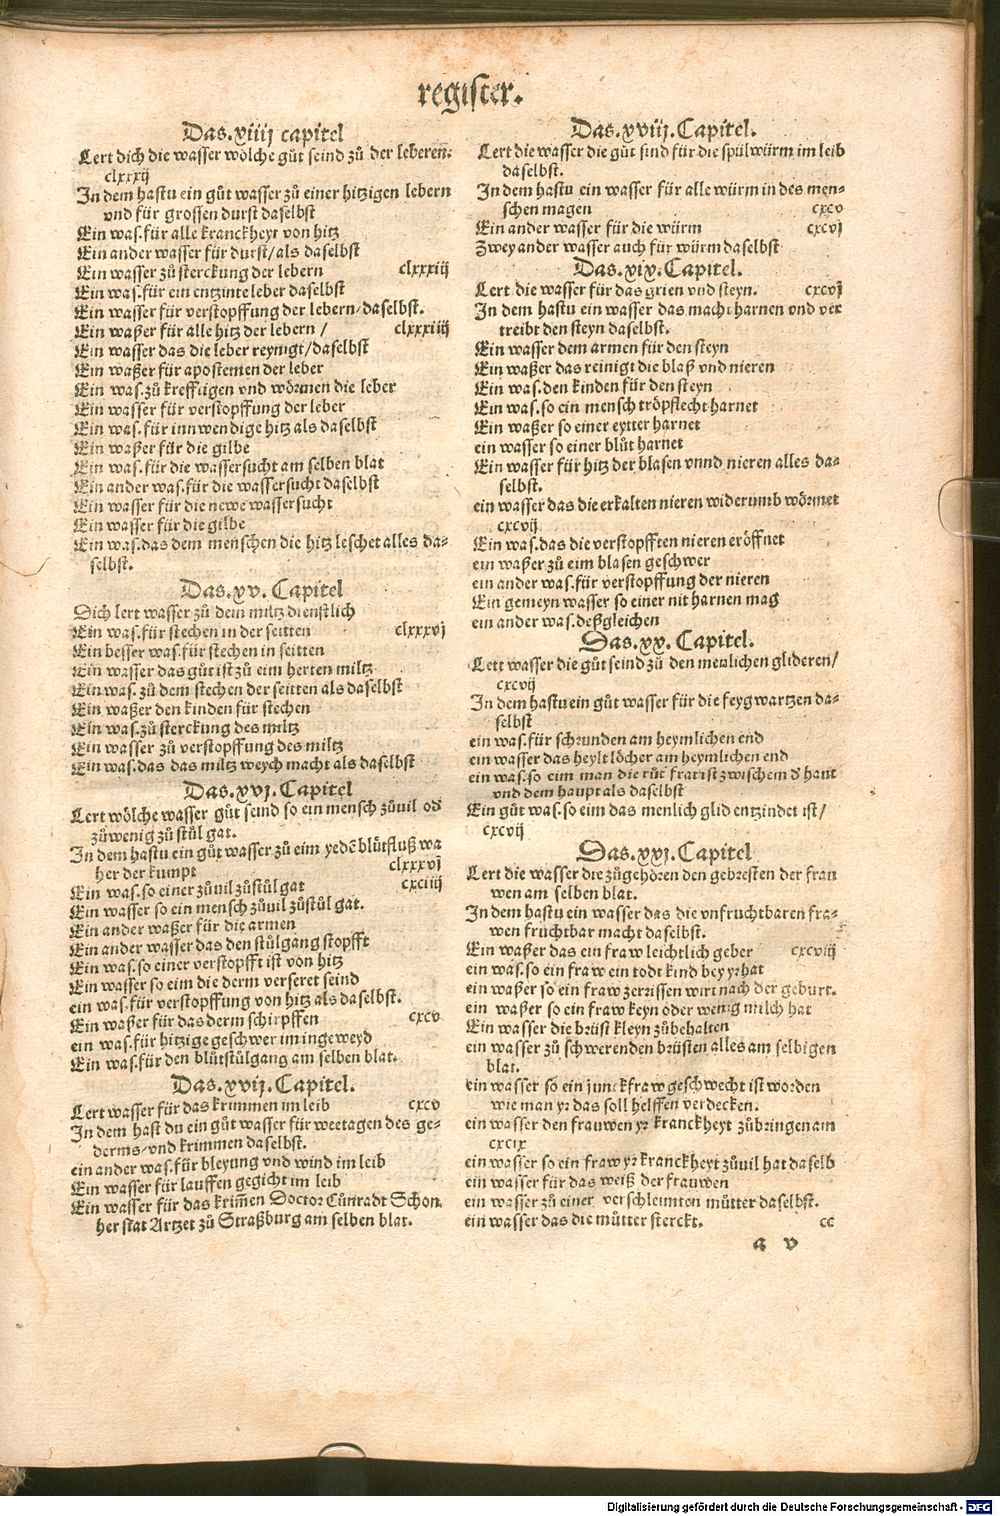 register.
Das.xiiij capitel
Lert dich die wasser wölche gůt seind zů der leberen.
clxxxij
In dem hastu ein gůt wasser zů einer hitzigen lebern
vnd für grossen durst daselbst
Ein was.für alle kranckheyt von hitz
Ein ander wasser für durst/als daselbst
Ein wasser zů sterckung der lebern clxxxiij
Ein was.für ein entzinte leber daselbst
Ein wasser für verstopffung der lebern/daselbst.
Ein waßer für alle hitz der lebern / clxxxiiij
Ein wasser das die leber reynigt/daselbst
Ein waßer für apostemen der leber
Ein was.zů krefftigen vnd wörmen die leber
Ein wasser für verstopffung der leber
Ein was.für innwendige hitz als daselbst
Ein waßer für die gilbe
Ein was.für die wassersucht am selben blat
Ein ander was.für die wassersucht daselbst
Ein wasser für die newe wassersucht
Ein wasser für die gilbe
Ein was.das dem menschen die hitz leschet alles da-
selbst.
Das.xv.Capitel
Dich lert wasser zů dem miltz dienstlich
Ein was.für stechen in der seitten clxxxvj
Ein besser was.für stechen in seitten
Ein wasser das gůt ist zů eim herten miltz
Ein was.zů dem stechen der seitten als daselbst
Ein waßer den kinden für stechen
Ein was.zů sterckung des miltz
Ein wasser zů verstopffung des miltz
Ein was.das das miltz weych macht als daselbst
Das.xvj.Capitel
Lert wölche wasser gůt seind so ein mensch zůuil od̕
zůwenig zů stůl gat.
In dem hastu ein gůt wasser zů eim yedē blůtfluß wa
her der kumpt clxxxvj
Ein was.so einer zůuil zůstůl gat cxciiij
Ein wasser so ein mensch zůuil zůstůl gat.
Ein ander waßer für die armen
Ein ander wasser das den stůlgang stopfft
Ein was.so einer verstopfft ist von hitz
Ein wasser so eim die derm verseret seind
ein was.für verstopffung von hitz als daselbst.
Ein waßer für das derm schirpffen cxcv
ein was.für hitzige geschwer im ingeweyd
Ein was.für den blůtstůlgang am selben blat.
Das.xvij.Capitel.
Lert wasser für das krimmen im leib cxcv
In dem hast du ein gůt wasser für weetagen des ge-
derms/vnd krimmen daselbst.
ein ander was.für bleyung vnd wind im leib
Ein wasser für lauffen gegicht im leib
Ein wasser für das krim̄en Doctor Cůnradt Schon
her stat Artzet zů Straßburg am selben blat.
Das.xviij.Capitel.
Lert die wasser die gůt sind für die spülwürm im leib
daselbst.
In dem hastu ein wasser für alle würm in des men-
schen magen cxcv
Ein ander wasser für die würm cxcvj
Zwey ander wasser auch für würm daselbst
Das.xix.Capitel.
Lert die wasser für das grien vnd steyn. cxcvj
In dem hastu ein wasser das macht harnen vnd ver
treibt den steyn daselbst.
Ein wasser dem armen für den steyn
Ein waßer das reinigt die blaß vnd nieren
Ein was.den kinden für den steyn
Ein was.so ein mensch tröpflecht harnet
Ein waßer so einer eytter harnet
ein wasser so einer blůt harnet
Ein wasser für hitz der blasen vnnd nieren alles da-
selbst.
ein wasser das die erkalten nieren widerumb wörmet
cxcvij
Ein was.das die verstopfften nieren eröffnet
ein waßer zů eim blasen geschwer
ein ander was.für verstopffung der nieren
Ein gemeyn wasser so einer nit harnen mag
ein ander was.deßgleichen
Das.xx.Capitel.
Lert wasser die gůt seind zů den menlichen glideren/
cxcvij
In dem hastu ein gůt wasser für die feygwartzen da-
selbst
ein was.für schrunden am heymlichen end
ein wasser das heylt löcher am heymlichen end
ein was.so eim man die růt frat ist zwischem d̕ haut
vnd dem haupt als daselbst
Ein gůt was.so eim das menlich glid entzindet ist/
cxcvij
Das.xxj.Capitel
Lert die wasser die zůgehören den gebresten der frau
wen am selben blat.
In dem hastu ein wasser das die vnfruchtbaren fra-
wen fruchtbar macht daselbst.
Ein waßer das ein fraw leichtlich geber cxcviij
ein was.so ein fraw ein todt kind bey yr hat
ein waßer so ein fraw zerrissen wirt nach der geburt.
ein waßer so ein fraw keyn oder wenig milch hat
Ein wasser die brüst kleyn zůbehalten
ein wasser zů schwerenden brüsten alles am selbigen
blat.
ein wasser so ein junckfraw geschwecht ist worden
wie man yr das soll helffen verdecken.
ein wasser den frauwen yr kranckheyt zůbringen am
cxcix
ein wasser so ein fraw yr kranckheyt zůuil hat daselb
ein wasser für das weiß der frauwen
ein wasser zů einer verschleimten můtter daselbst.
ein wasser das die můtter sterckt. cc
a v
Digitalisierung gefördert durch die Deutsche Forschungsgemeinschaft - DFG